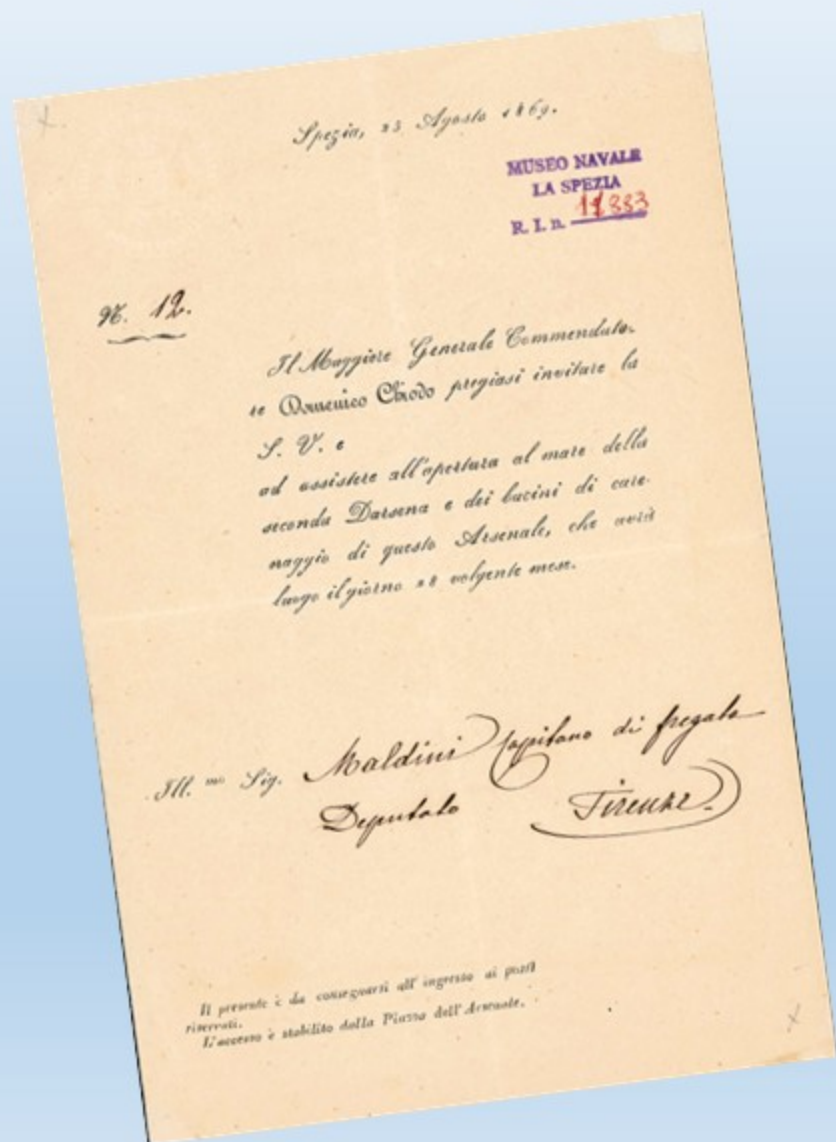 Spezia, 23 Agosto 1869.
MUSEO NAVALE
LA SPEZIA
R. I. n. 11883
N. 12.
Il Maggiore Generale Commendato-
re Domenico Chiodo pregiasi invitare la
S. V. e
ad assistere all'apertura al mare della
seconda Darsena e dei bacini di care-
naggio di questo Arsenale, che avrà
luogo il giorno 28 volgente mese.
Ill.mo Sig. Maldini Capitano di fregata
Deputato Firenze.
Il presente è da consegnarsi all'ingresso ai posti
riservati.
L'accesso è stabilito dalla Piazza dell'Arsenale.